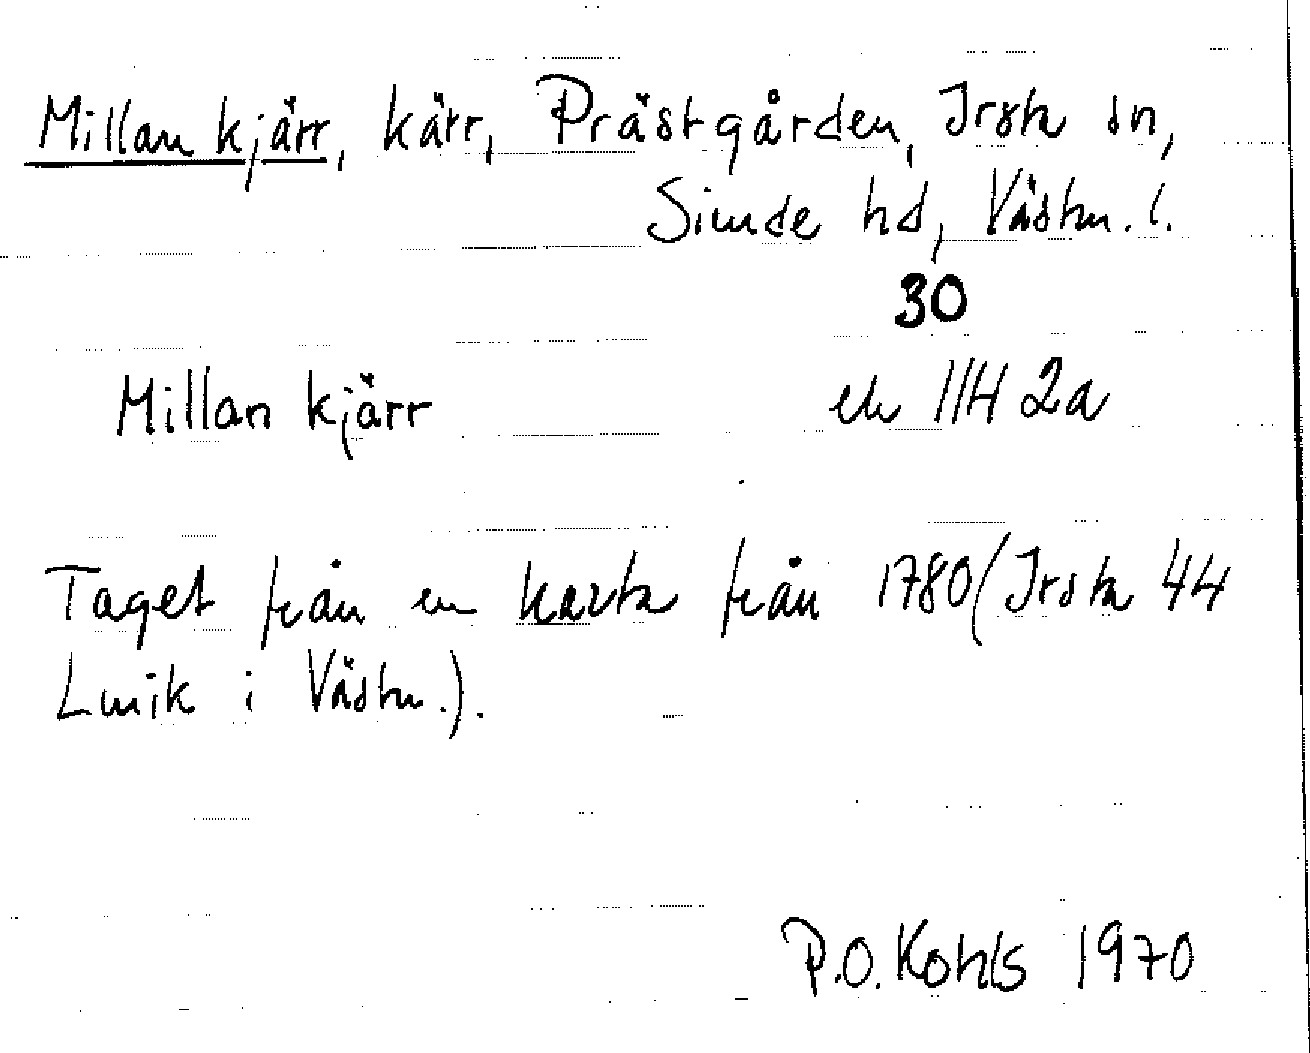 Millan kjärr, kärr, Prästgården, Irsta sn,
Siende hd, Västm. l.
30
Millan kjärr ek 11H 2a
Taget från en karta från 1780 (Irsta 44
Lmik i Västm.).
P.O. Kohls 1970